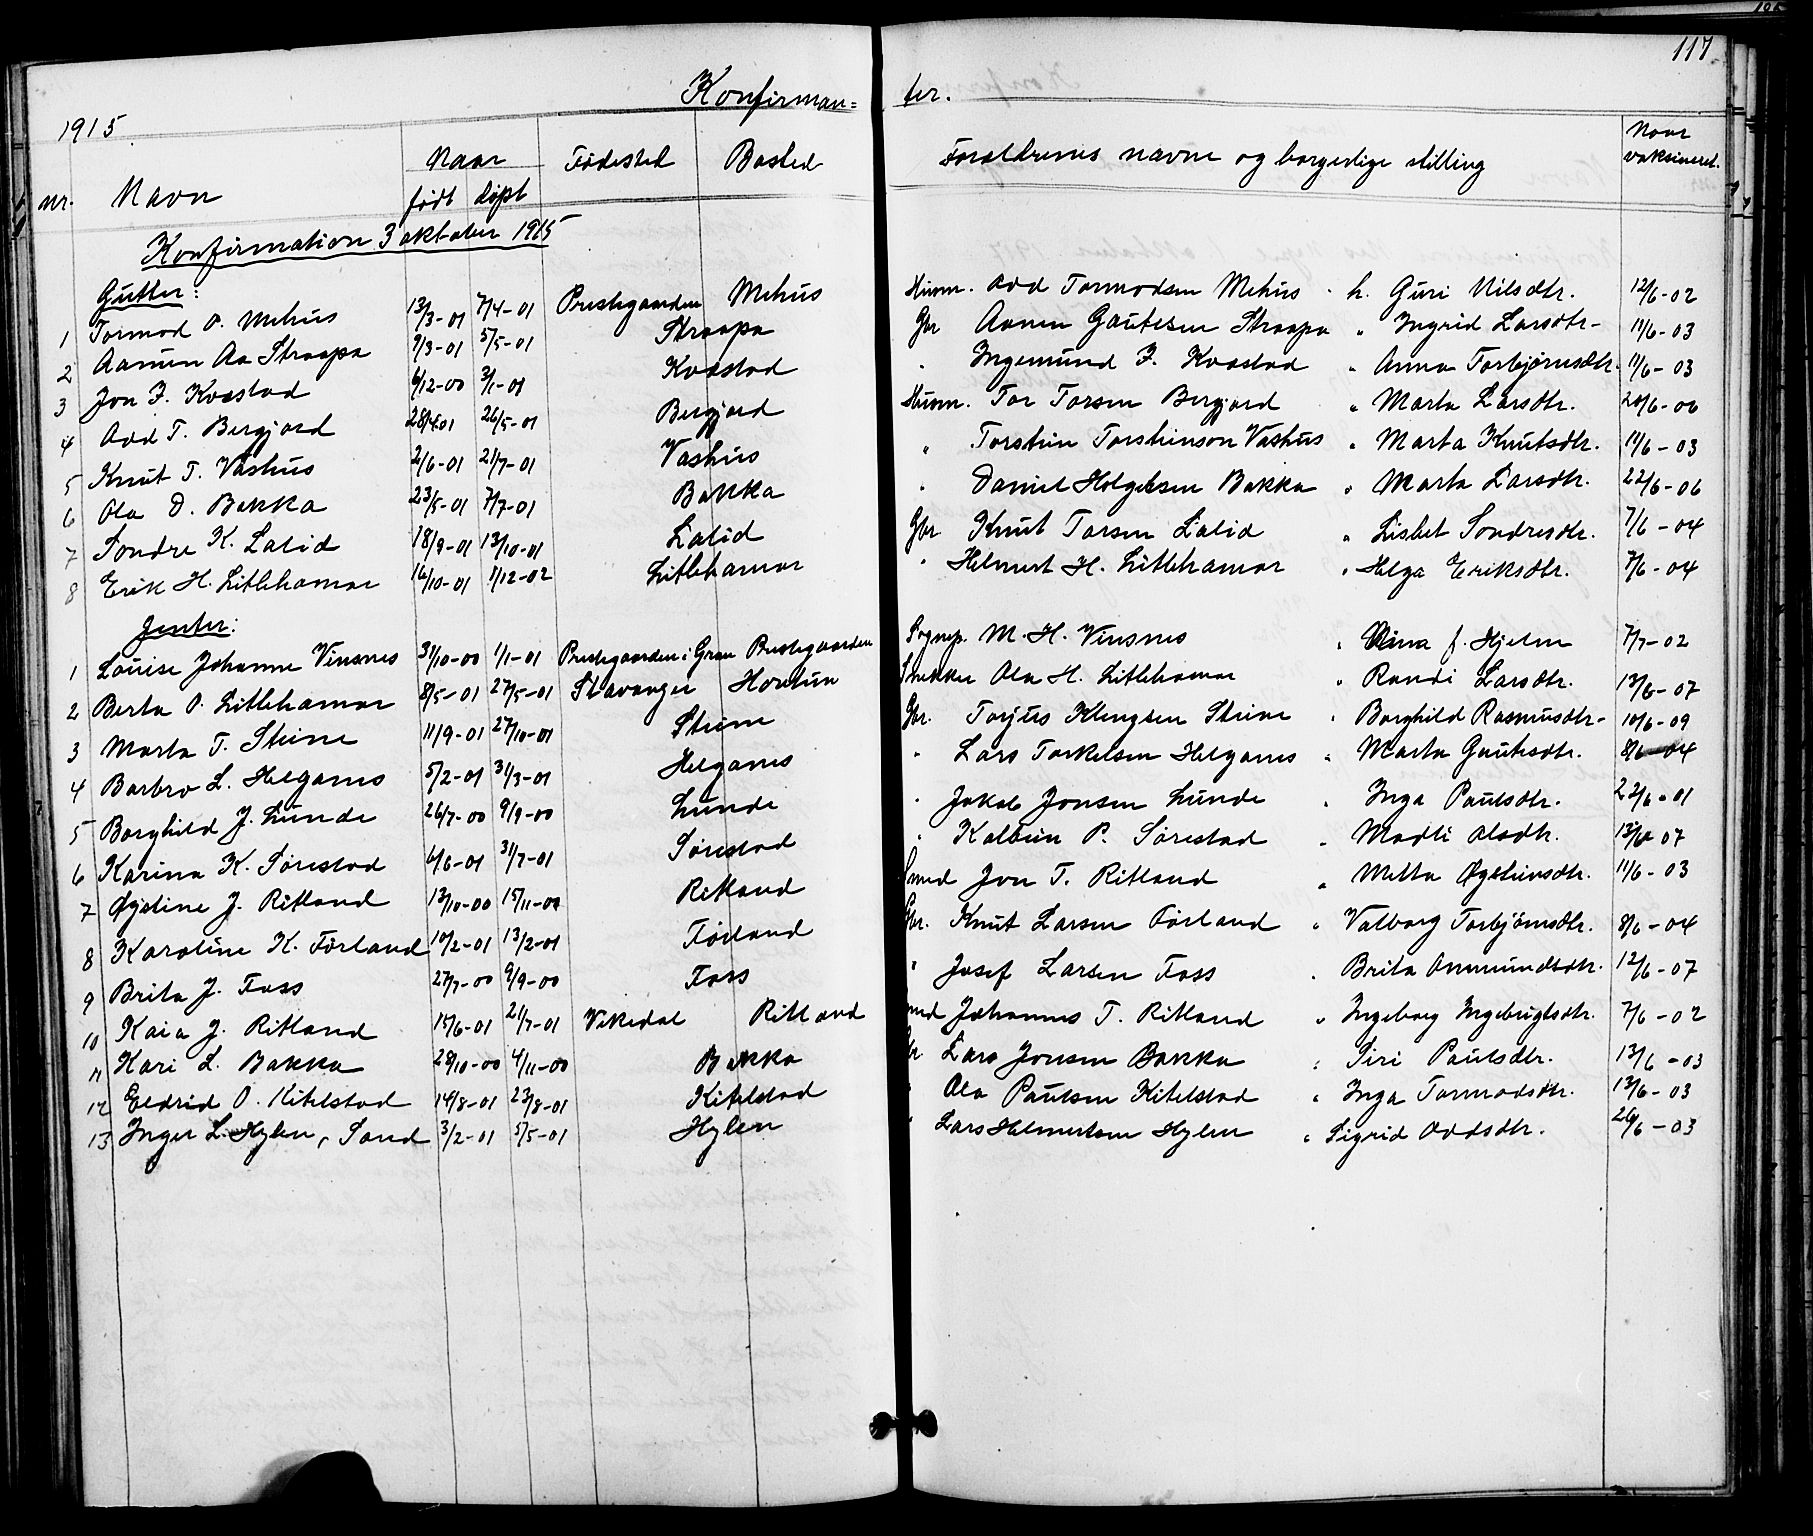 117.
Konfirman= ter.
1915
nr. Navn Naar født døpt Fødested Bosted Forældrenes navne og borgerlige stilling Naar vaksineret.
Konfirmation 3 oktober 1915
Gutter:
1 Tormod O. Mehus 13/3-01 7/4-01 Prestegaarden Mehus Husm. Odd Tormodsen Mehus h. Guri Nilsdtr. 12/6-02
2 Aanun Aa Straapa 9/3-01 5/5-01 Straapa Gbr Aanen Gautesen Straapa " Ingrid Larsdtr- 11/6-03
3 Jon I. Kvæstad 6/12-00 3/1-01 Kvæstad " Ingemund J. Kvæstad " Anna Torbjørnsdtr. 11/6-03
4 Odd T. Bergjord 28/4-01 26/5-01 Bergjord Husm. Tor Torsen Bergjord " Marta Larsdtr. 20/6-06
5 Knut T. Vashus 2/6-01 21/7-01 Vashus " Torstein Torsteinson Vashus " Marta Knutsdtr. 11/6-03
6 Ola D. Bakka 23/5-01 7/7-01 Bakka " Daniel Holgersen Bakka " Marta Larsdtr. 22/6-06
7 Sondre K. Lalid 18/9-01 13/10-01 Lalid Gbr Knut Torsen Lalid " Lisbet Sondresdtr. 7/6-04
8 Erik H. Litlehamar 16/10-01 1/12-02 Litlehamar " Helmert H. Litlehamar " Helga Eriksdtr. 7/6-04
Jenter:
1 Louise Johanne Vinsnes 31/10-00 1/1-01 Prestegaarden i Gran Prestegaarden Sognep. M. H. Vinsnes " f. Hjelm 7/7-02
2 Berta O. Litlehamar 8/5-01 27/5-01 Stavanger Hontun Snekker Ola H. Litlehamar " Randi Larsdtr. 13/6-07
3 Marta T. Steine 11/9-01 27/10-01 Steine Gbr. Torjus Klengsen Steine " Borghild Rasmusdtr- 10/6-09
4 Barbro L. Helganes 5/2-01 31/3-01 Helganes " Lars Torkelsen Helganes " Marta Gautesdtr. 8/6-04
5 Borghild J. Lunde 26/7-00 9/9-00 Lunde " Jakob Jonsen Lunde " Inga Paulsdtr. 22/6-01
6 Karina K. Sørestad 6/6-01 31/7-01 Sørestad " Kolbein P. Sørestad " Madli Olsdtr. 13/6-07
7 Øystine J. Ritland 13/10-00 15/11-00 Ritland Smed Jon T. Ritland " Metta Øysteinsdtr. 11/6-03
8 Karoline K. Førland 10/2-01 13/2-01 Førland Gbr. Knut Larsen Førland " Valborg Torbjørnsdtr. 8/6-04
9 Brita J. Foss 27/7-00 9/9-00 Foss " Josef Larsen Foss " Brita Onmundsdtr. 12/6-07
10 Kaia J. Ritland 15/6-01 21/7-01 Vikedal Ritland Smed Johannes T. Ritland " Ingeborg Ingebrigtsdtr. 7/6-02
11 Kari L. Bakka 28/10-00 4/11-00 Bakka Gbr Lars Jonsen Bakka " Siri Paulsdtr. 13/6-03
12 Eldrid O. Kitelstad 14/8-01 23/8-01 Kitelstad " Ola Paulsen Kitelstad " Inga Tormodsdtr. 13/6-03
13 Inger L. Hylen, Sand 3/2-01 5/5-01 Hylen " Lars Helmertsen Hylen " Sigrid Oddsdtr. 26/6-03